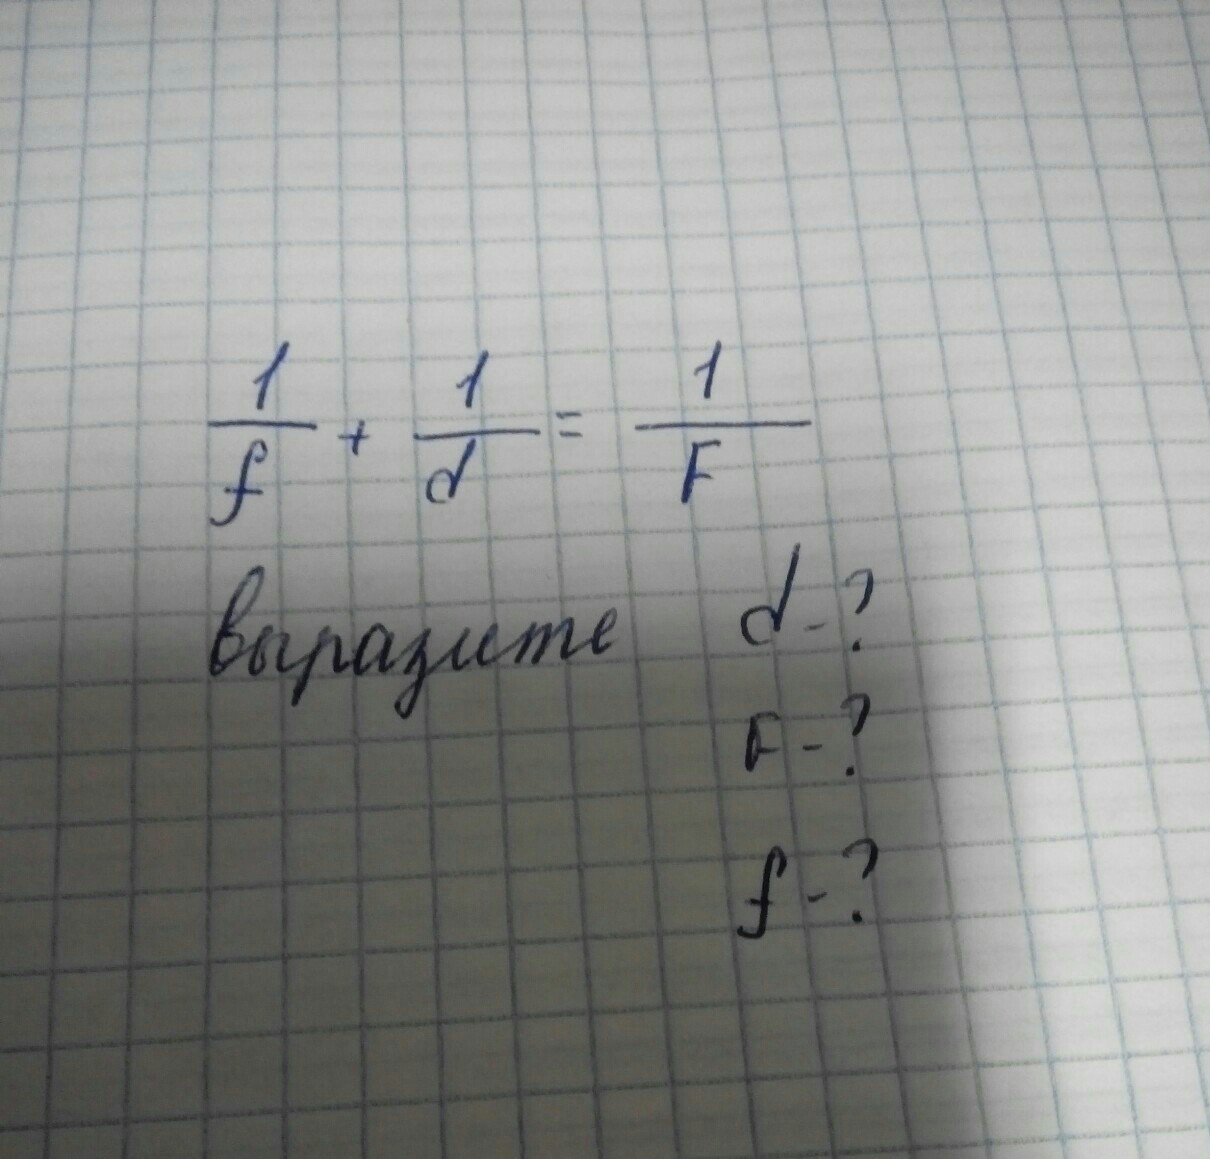 1/f + 1/d = 1/F
выразите d - ?
F - ?
f - ?